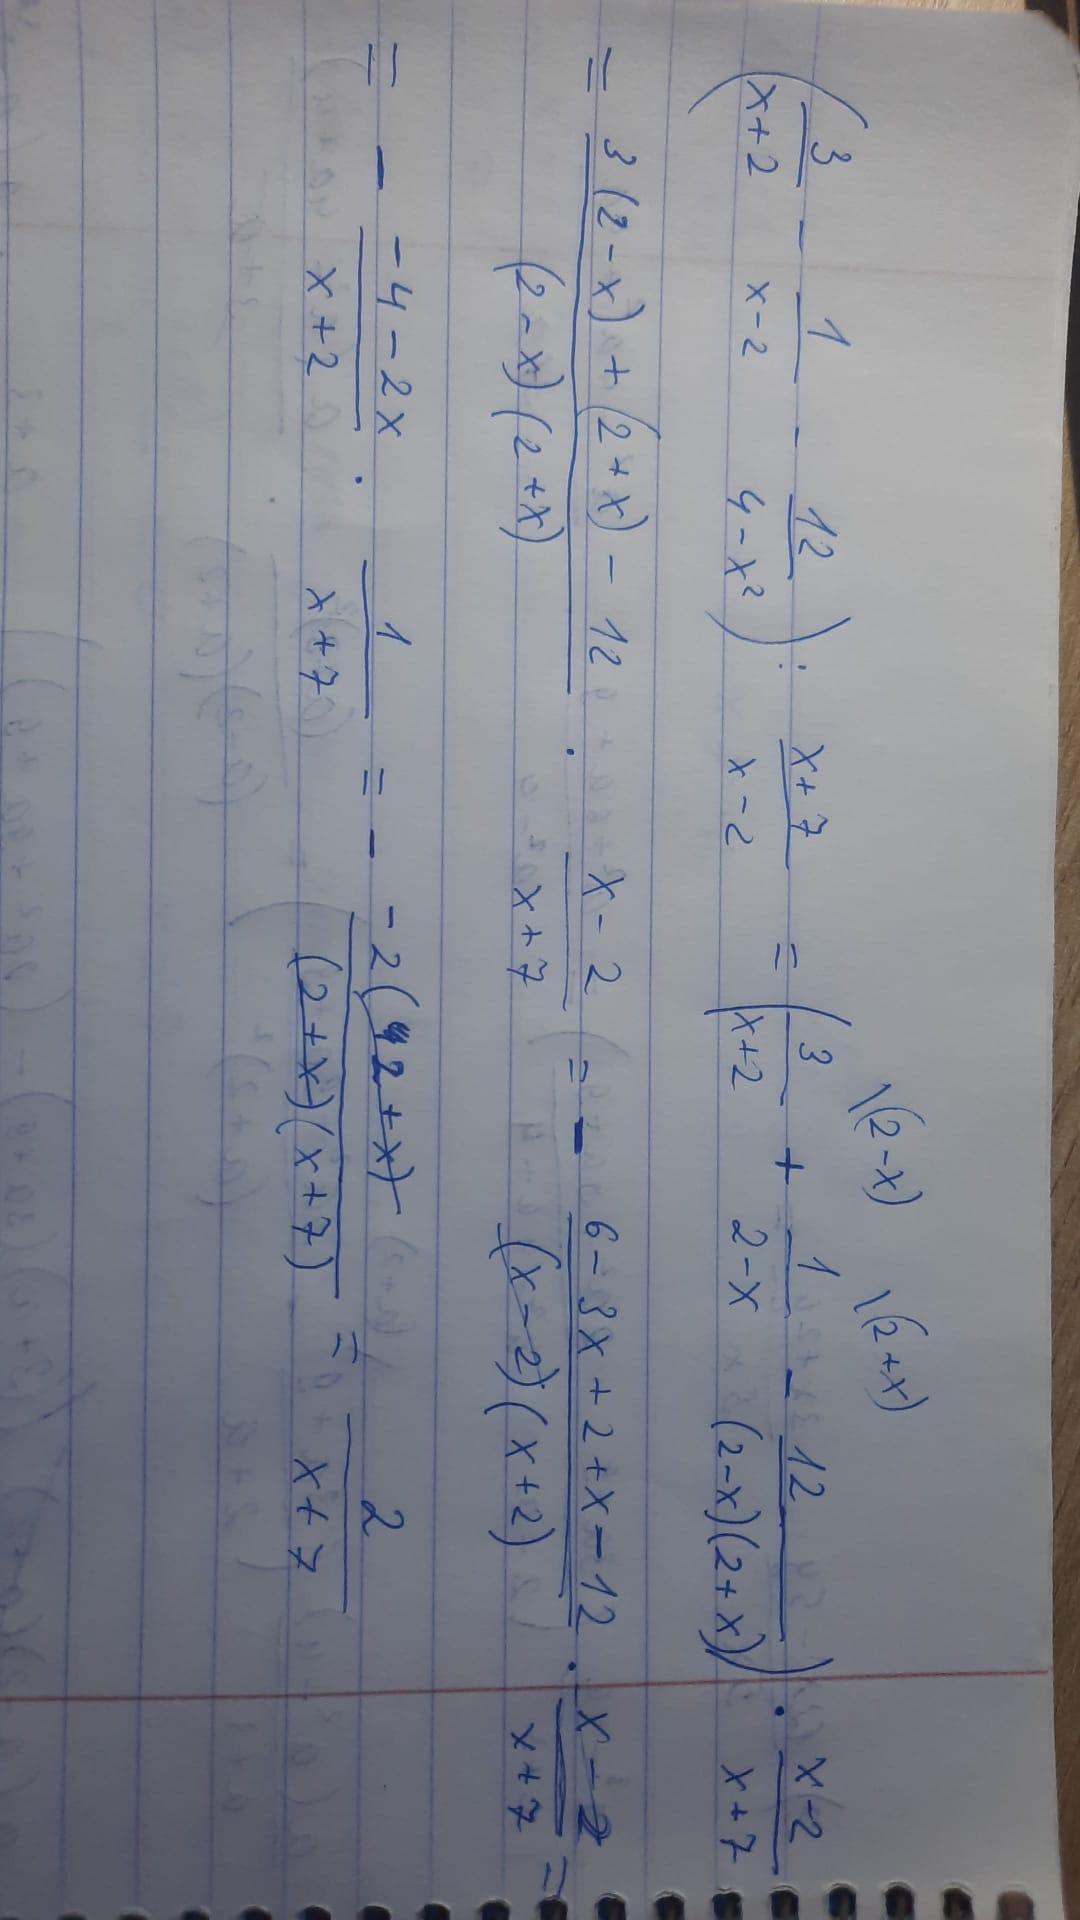 \(2-x) \(2+x)
(3/(x+2) - 1/(x-2) - 12/(4-x²)) : (x+7)/(x-2) = (3/(x+2) + 1/(2-x) - 12/((2-x)(2+x))) · (x-2)/(x+7)
= (3(2-x)+(2+x)-12)/((2-x)(2+x)) · (x-2)/(x+7) = - (6-3x+2+x-12)/((x-2)(x+2)) · (x-2)/(x+7) =
= - (-4-2x)/(x+2) · 1/(x+7) = - (-2(2+x))/((2+x)(x+7)) = 2/(x+7)